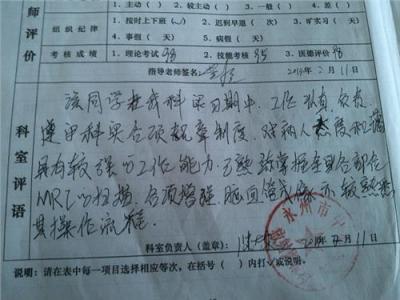 师评价
1. 主动（ ） 2. 较主动（ ） 3. 一般（ ） 4. 差（ ）
组织纪律
1. 按时上下班（√） 2. 迟到早退（ 次） 3. 旷实习（ 天）
4. 事假（ 天） 5. 病假（ 天）
考核成绩
1. 理论考试 98 2. 技能考核 95 3. 医德评价 98
指导老师签名： 2014年2月11日
科室评语
该同学在我科实习期中，工作认真、负责，
遵守科室各项规章制度，对病人态度和蔼
具有较强的工作能力，已熟练掌握全身各部位
MRI的扫描，各项增强，脑血管成像亦较熟悉
其操作流程。
科室负责人（盖章）： 2014年2月11日
永州市
说明：请在表中每一项目选择相应等次，在括号（ ）内打√或说明。